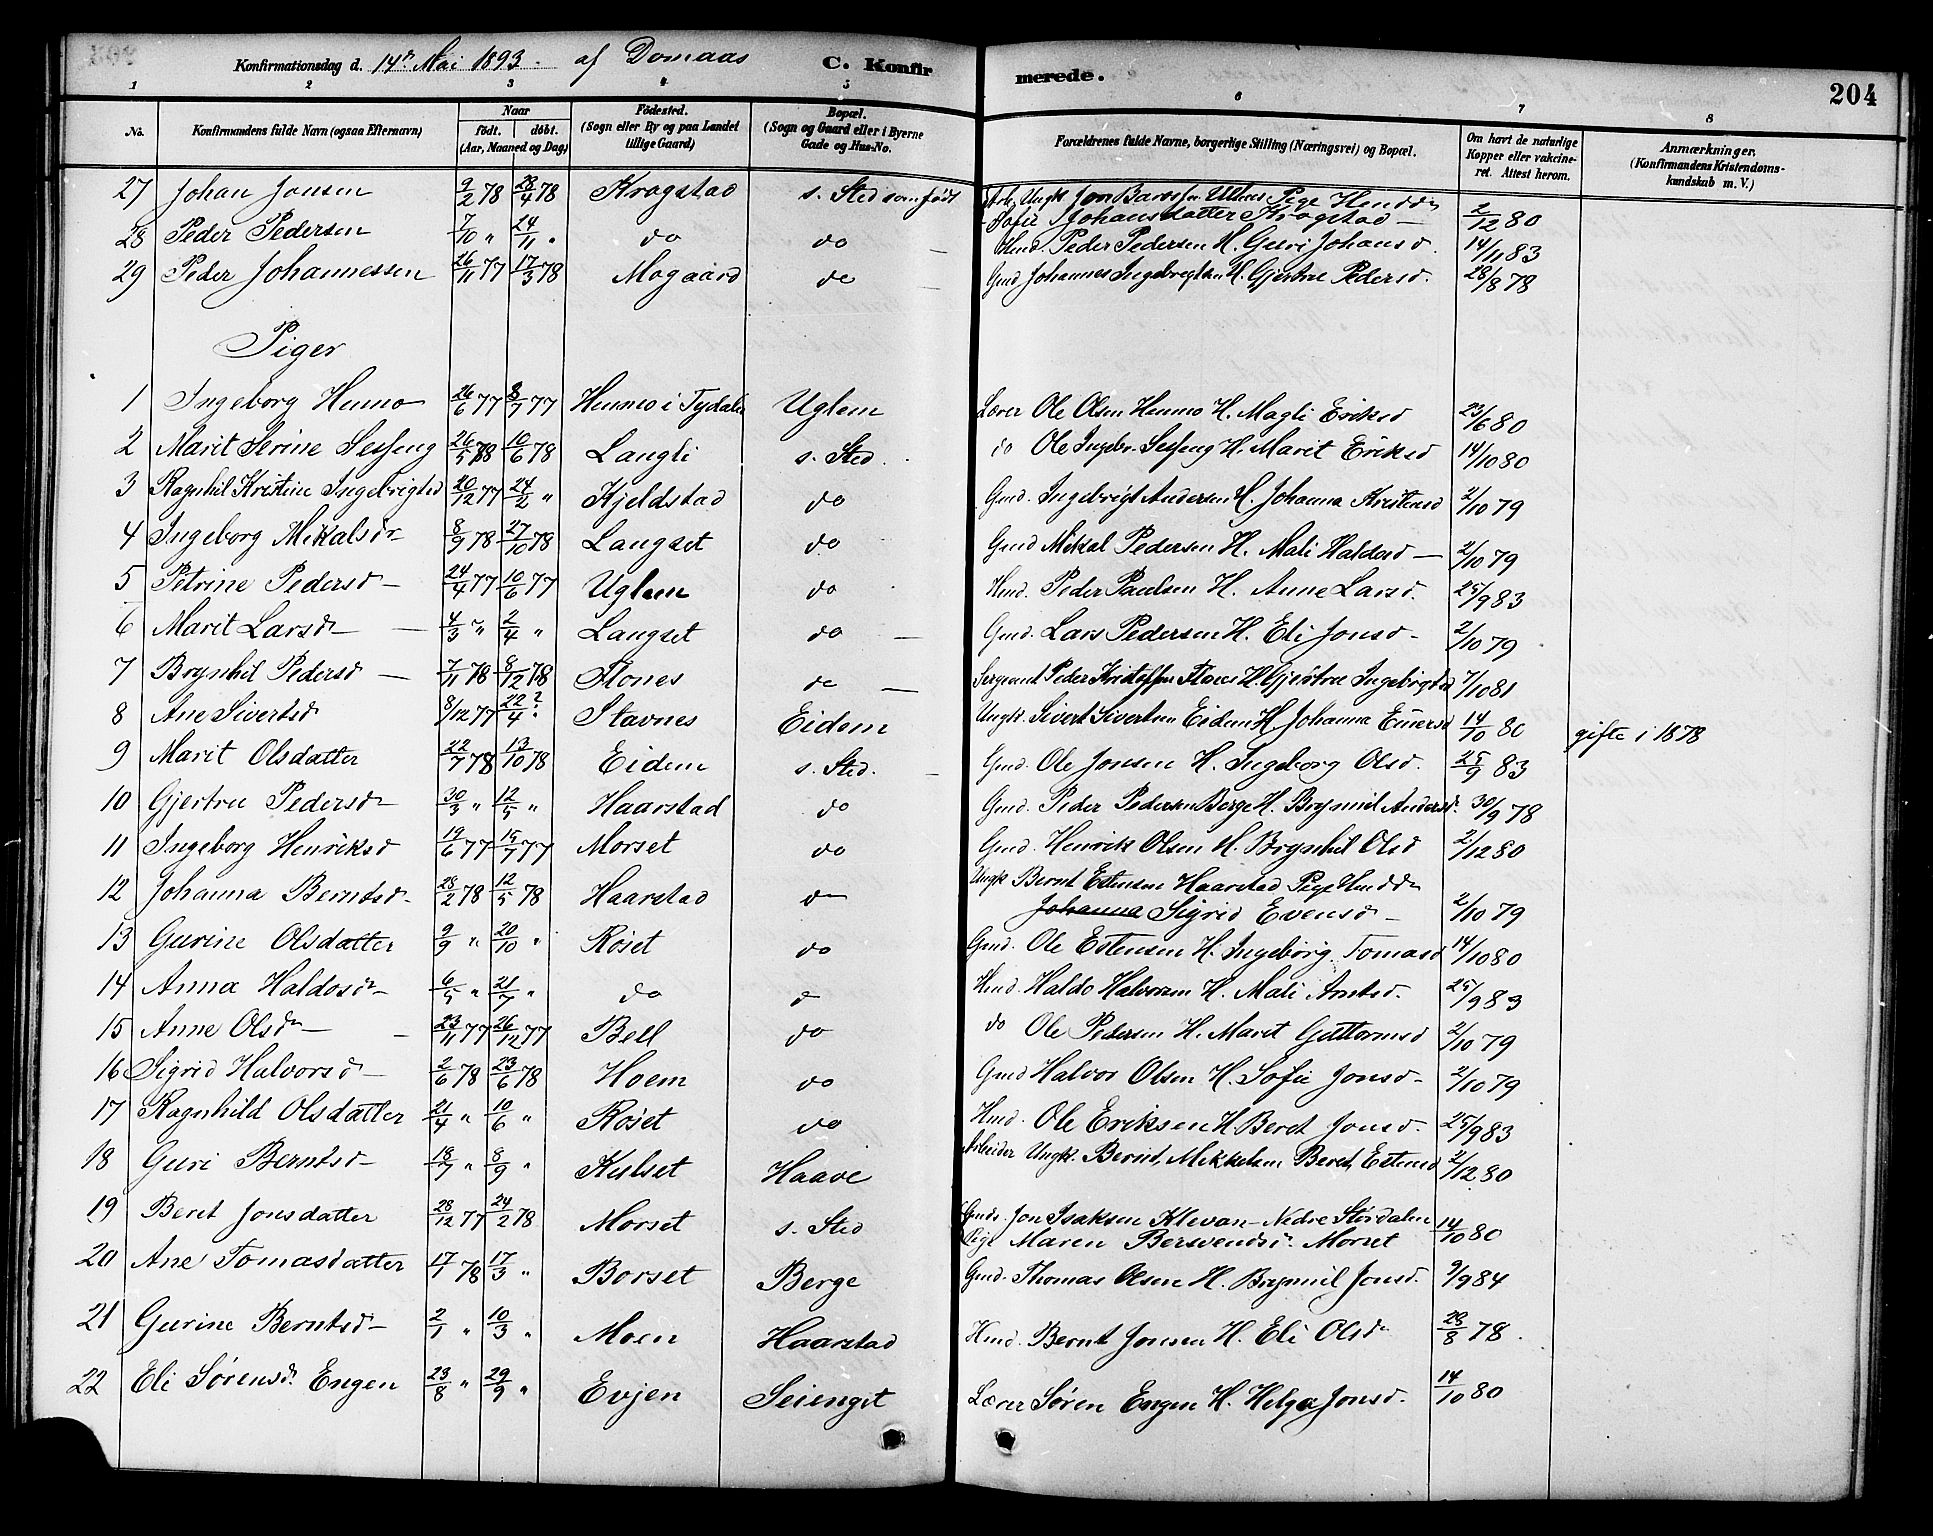 Konfirmationsdag d. 14de Mai 1893. af Domaas C. Konfirmerede. 204
1 2 3 4 5 6 7 8
No. Konfirmandens fulde Navn (ogsaa Efternavn) Naar födt. döbt. (Aar, Maaned og Dag) Födested. (Sogn eller By og paa Landet tillige Gaard) Bopæl. (Sogn og Gaard eller i Byerne Gade og Hus-No. Forældrenes fulde Navne, borgerlige Stilling (Næringsvei) og Bopæl. Om havt de naturlige Kopper eller vakcineret. Attest herom. Anmærkninger. (Konfirmandens Kristendomskundskab m. V.)
27 Johan Jonsen 9/2 78 28/4 78 Kragstad s. Sted som født Ungk Jon Pige Hmdd
Sofie Johansdatter Kragstad — 2/12 80
28 Peder Pedersen 7/10 " 24/11 " do do — Hmd. Peder Pedersen H. Guri Johansd. 14/11 83
29 Peder Johannessen 26/11 77 17/3 78 Mogaard do — Gmd Johannes Ingebrigtsen H. Gjertrue Pedersd. 28/8 78
Piger
1 Ingeborg Hunno 26/6 77 8/7 77 Hunno i Tydalen Uglem Lærer Ole Olsen Hunno H. Magli Eriksd 23/6 80
2 Marit Serine Sesseng 26/5 78 10/6 78 Langli s. Sted do Ole Ingebr. Sesseng H. Marit Eriksd 14/10 80
3 Ragnhil Kristine Ingebrigtsd 20/12 77 24/2 " Kjeldstad do Gmd. Ingebrigt Andersen H. Johanna Kristensd 2/10 79
4 Ingeborg Mikalsdr 8/9 78 27/10 78 Langset do Gmd Mikal Pedersen H. Mali Haldosd — 2/10 79
5 Petrine Pedersd — 24/4 77 10/6 77 Uglem do Hmd. Peder Paulsen H. Anne Larsd. 25/9 83
6 Marit Larsdr — 4/3 " 2/4 " Langset do — Gmd. Lars Pedersen H. Eli Jonsd — 2/10 79
7 Brynhil Pedersd — 7/11 78 8/12 78 Flones do — Sergeant Peder Kristoffersen Flones H. Gjertrue Ingebrigtsd 7/10 81
8 Ane Sivertsd 8/12 77 22/4 ? Stavnes Eidem Ungk. Sivert Sivertsen Eidem H Johanna Einersd 14/10 80 gifte i 1878
9 Marit Olsdatter 22/7 78 13/10 78 Eidem s. Sted. — Gmd. Ole Jonsen H. Ingeborg Olsd. 25/9 83
10 Gjertru Pedersdr 30/3 " 12/5 " Haarstad do Gmd. Peder Pedersen Berge H. Brynnil Andersd. 30/9 78
11 Ingeborg Henriksd 19/6 77 15/7 77 Morset do Gmd. Henrik Olsen H. Brynhil Olsd 2/12 80
12 Johanna Berntsdr 28/2 78 12/5 78 Haarstad do Ungk Bernt Estensen Haarstad Pige Hmddr
Johanna Sigrid Evensd — 2/10 79
13 Gurine Olsdatter 9/9 " 20/10 " Røset do Gmd. Ole Estensen H. Ingeborg Tomasd 14/10 80
14 Anna Haldosdr — 6/5 " 21/7 " do do Hmd. Haldo Halvorsen H. Mali Arntsd. 25/9 83
15 Anne Olsdr — 23/11 77 26/12 77 Bell do do Ole Pedersen H. Marit Guttormsd 2/10 79
16 Sigrid Halvorsd — 2/6 78 23/6 78 Hoem do Gmd Halvor Olsen H. Sofie Jonsd — 2/10 79
17 Ragnhild Olsdatter 21/4 " 10/6 " Røset do Hmd. Ole Eriksen H. Beret Jonsd. 25/9 83
18 Guri Berntsd — 18/7 " 8/9 " Kulset Haave Arbeider Ungk. Bernt Mikkelsen Beret Estensd 2/12 80
19 Beret Jonsdatter 28/12 77 24/2 78 Morset s. Sted Jon Isaksen Klevan — Nedre Stördalen
Pige Maren Bersvendsd. Morset 14/10 80
20 Ane Tomasdatter 17/1 78 17/3 " Borset Berge Gmd. Thomas Olsen H. Brynnil Jonsd. 9/9 84
21 Gurine Berntsd — 2/1 " 10/3 " Moen Haarstad Hmd. Bernt Jonsen H. Eli Olsdr 28/8 78
22 Eli Sørensdr. Engen 23/8 " 29/9 " Evjen Seienget Lærer Søren Engen H. Helga Jonsd. 14/10 80